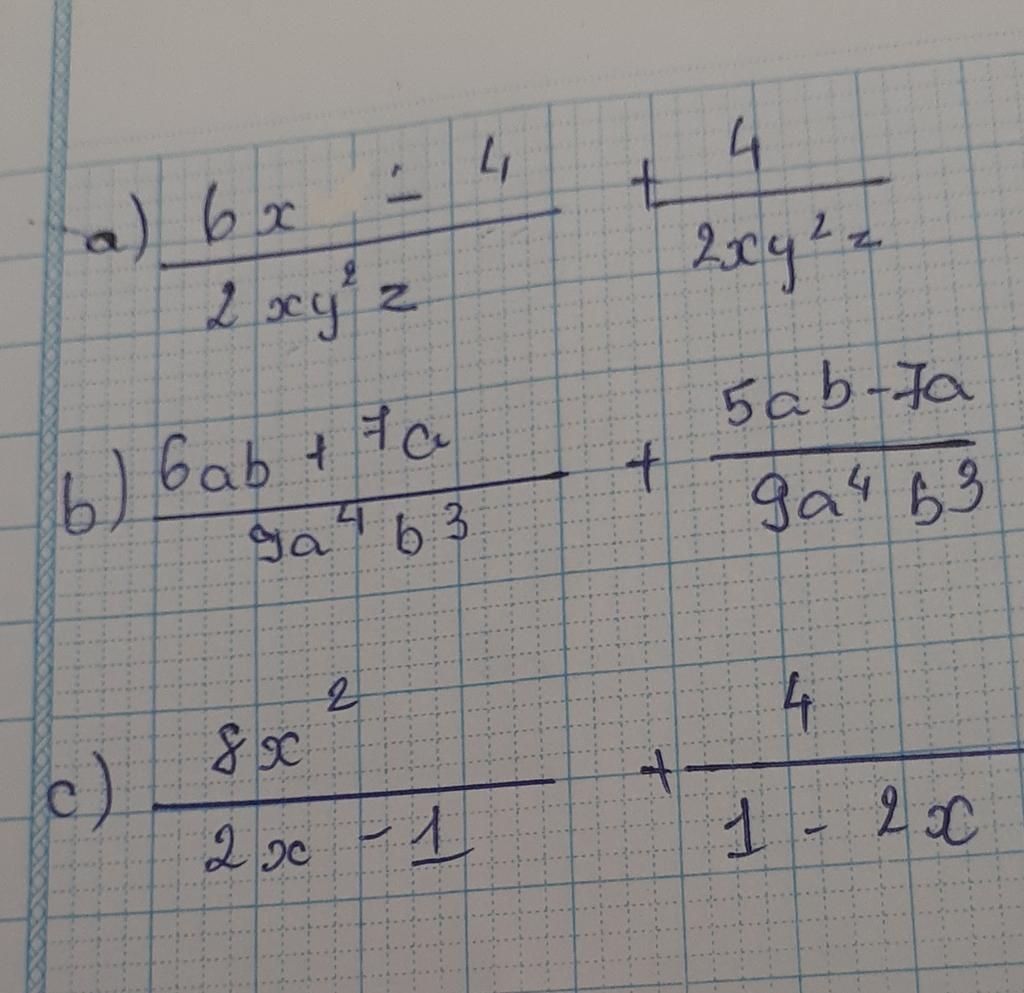 a) (6x ÷ 4)/(2xy²z) + 4/(2xy²z)
b) (6ab + 7a)/(9a⁴b³) + (5ab - 7a)/(9a⁴b³)
c) 8x²/(2x - 1) + 4/(1 - 2x)